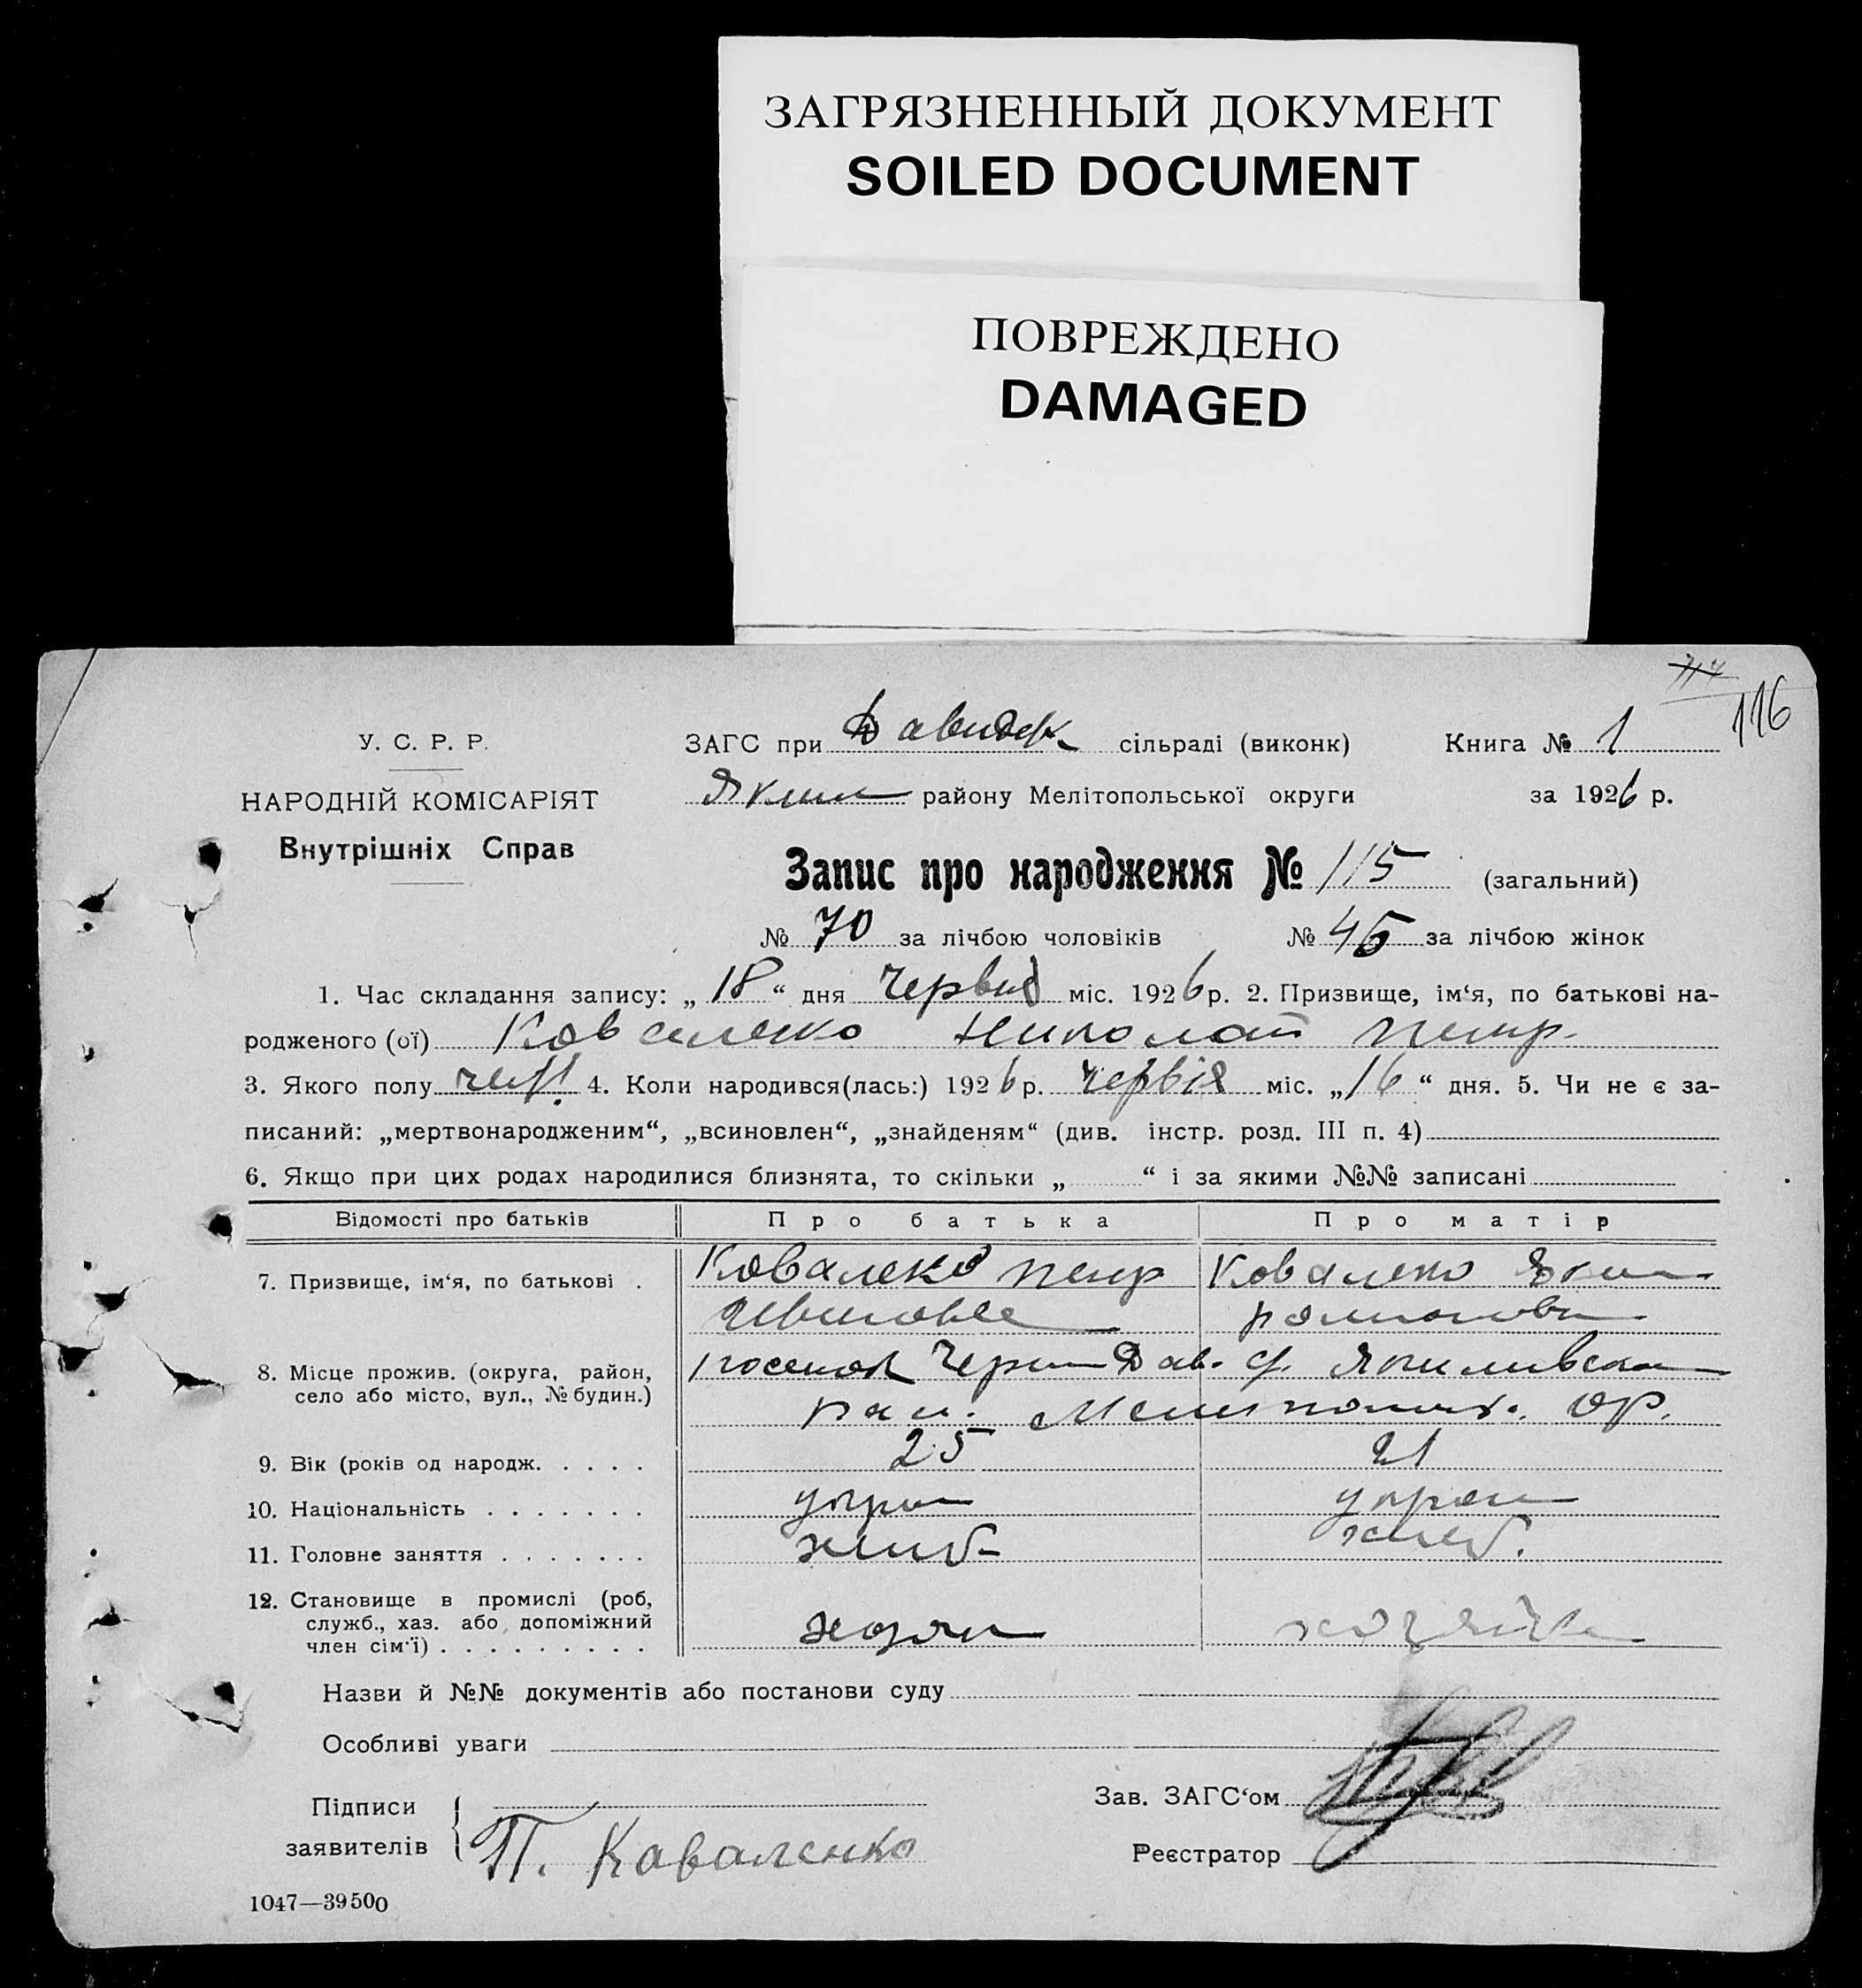 ЗАГРЯЗНЕННЫЙ ДОКУМЕНТ
SOILED DOCUMENT
ПОВРЕЖДЕНО
DAMAGED
116
У. С. Р. Р.
НАРОДНІЙ КОМІСАРІЯТ
Внутрішніх Справ
ЗАГС при Давидов. сільраді (виконк) Книга № 1
Яким району Мелітопольської округи за 1926 р.
Запис про народження № 115 (загальний)
№ 70 за лічбою чоловіків № 45 за лічбою жінок
1. Час складання запису: „ 18 “ дня Червня міс. 1926 р. 2. Призвище, ім‘я, по батькові на-
родженого (ої) Ковалеко Николай Петр.
3. Якого полу 4. Коли народився(лась:) 1926 р. Червія міс. „16 “ дня. 5. Чи не є за-
писаний: „мертвонародженим“, „всиновлен“, „знайденям“ (див. інстр. розд. III п. 4)
6. Якщо при цих родах народилися близнята, то скільки „ “ і за якими №№ записані
Відомості про батьків Про батька Про матір
7. Призвище, ім‘я, по батькові . Ковалеко Петр Ковалеко
8. Місце прожив. (округа, район, Дав. Якимивскаи
село або місто, вул., № будин.) Мелитополь. ок.
9. Вік (років од народж. . . . . 25 21
10. Національність . . . . . . . украи украи
11. Головне заняття . . . . . . . хлиб хлеб.
12. Становище в промислі (роб,
служб., хаз. або допоміжний
член сім‘ї) . . . . . . . . . хозяи хозяйка
Назви й №№ документів або постанови суду
Особливі уваги
Підписи
заявителів П. Каваленко
Зав. ЗАГС‘ом
Реєстратор
1047—39500